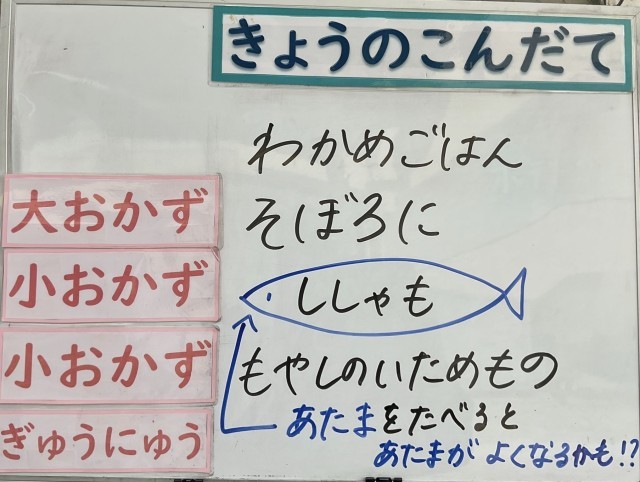 きょうのこんだて
わかめごはん
大おかず そぼろに
小おかず ししゃも
小おかず もやしのいためもの
ぎゅうにゅう
あたまをたべると
あたまが よくなるかも!?